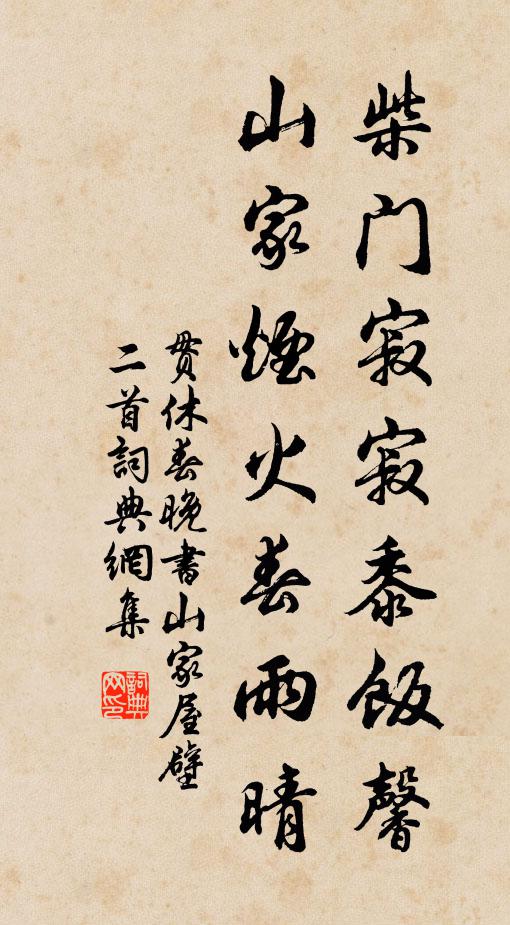 柴门寂寂黍饭馨
山家煙火春雨晴
贯休春晚書山家屋壁
二首詞典網集
詞典
网印